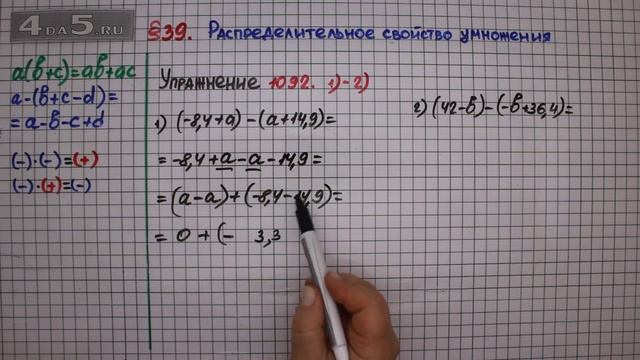 4DA5.RU
§39. Распределительное свойство умножения
a(b+c)=ab+ac
a-(b+c-d)=
=a-b-c+d
(-)·(-)=(+)
(-)·(+)=(-)
Упражнение 1092. 1)-2)
1) (-8,4+a)-(a+14,9)=
=-8,4+a-a-14,9=
=(a-a)+(-8,4-14,9)=
= 0 + (- 3,3
2) (42-b)-(-b+36,4)=